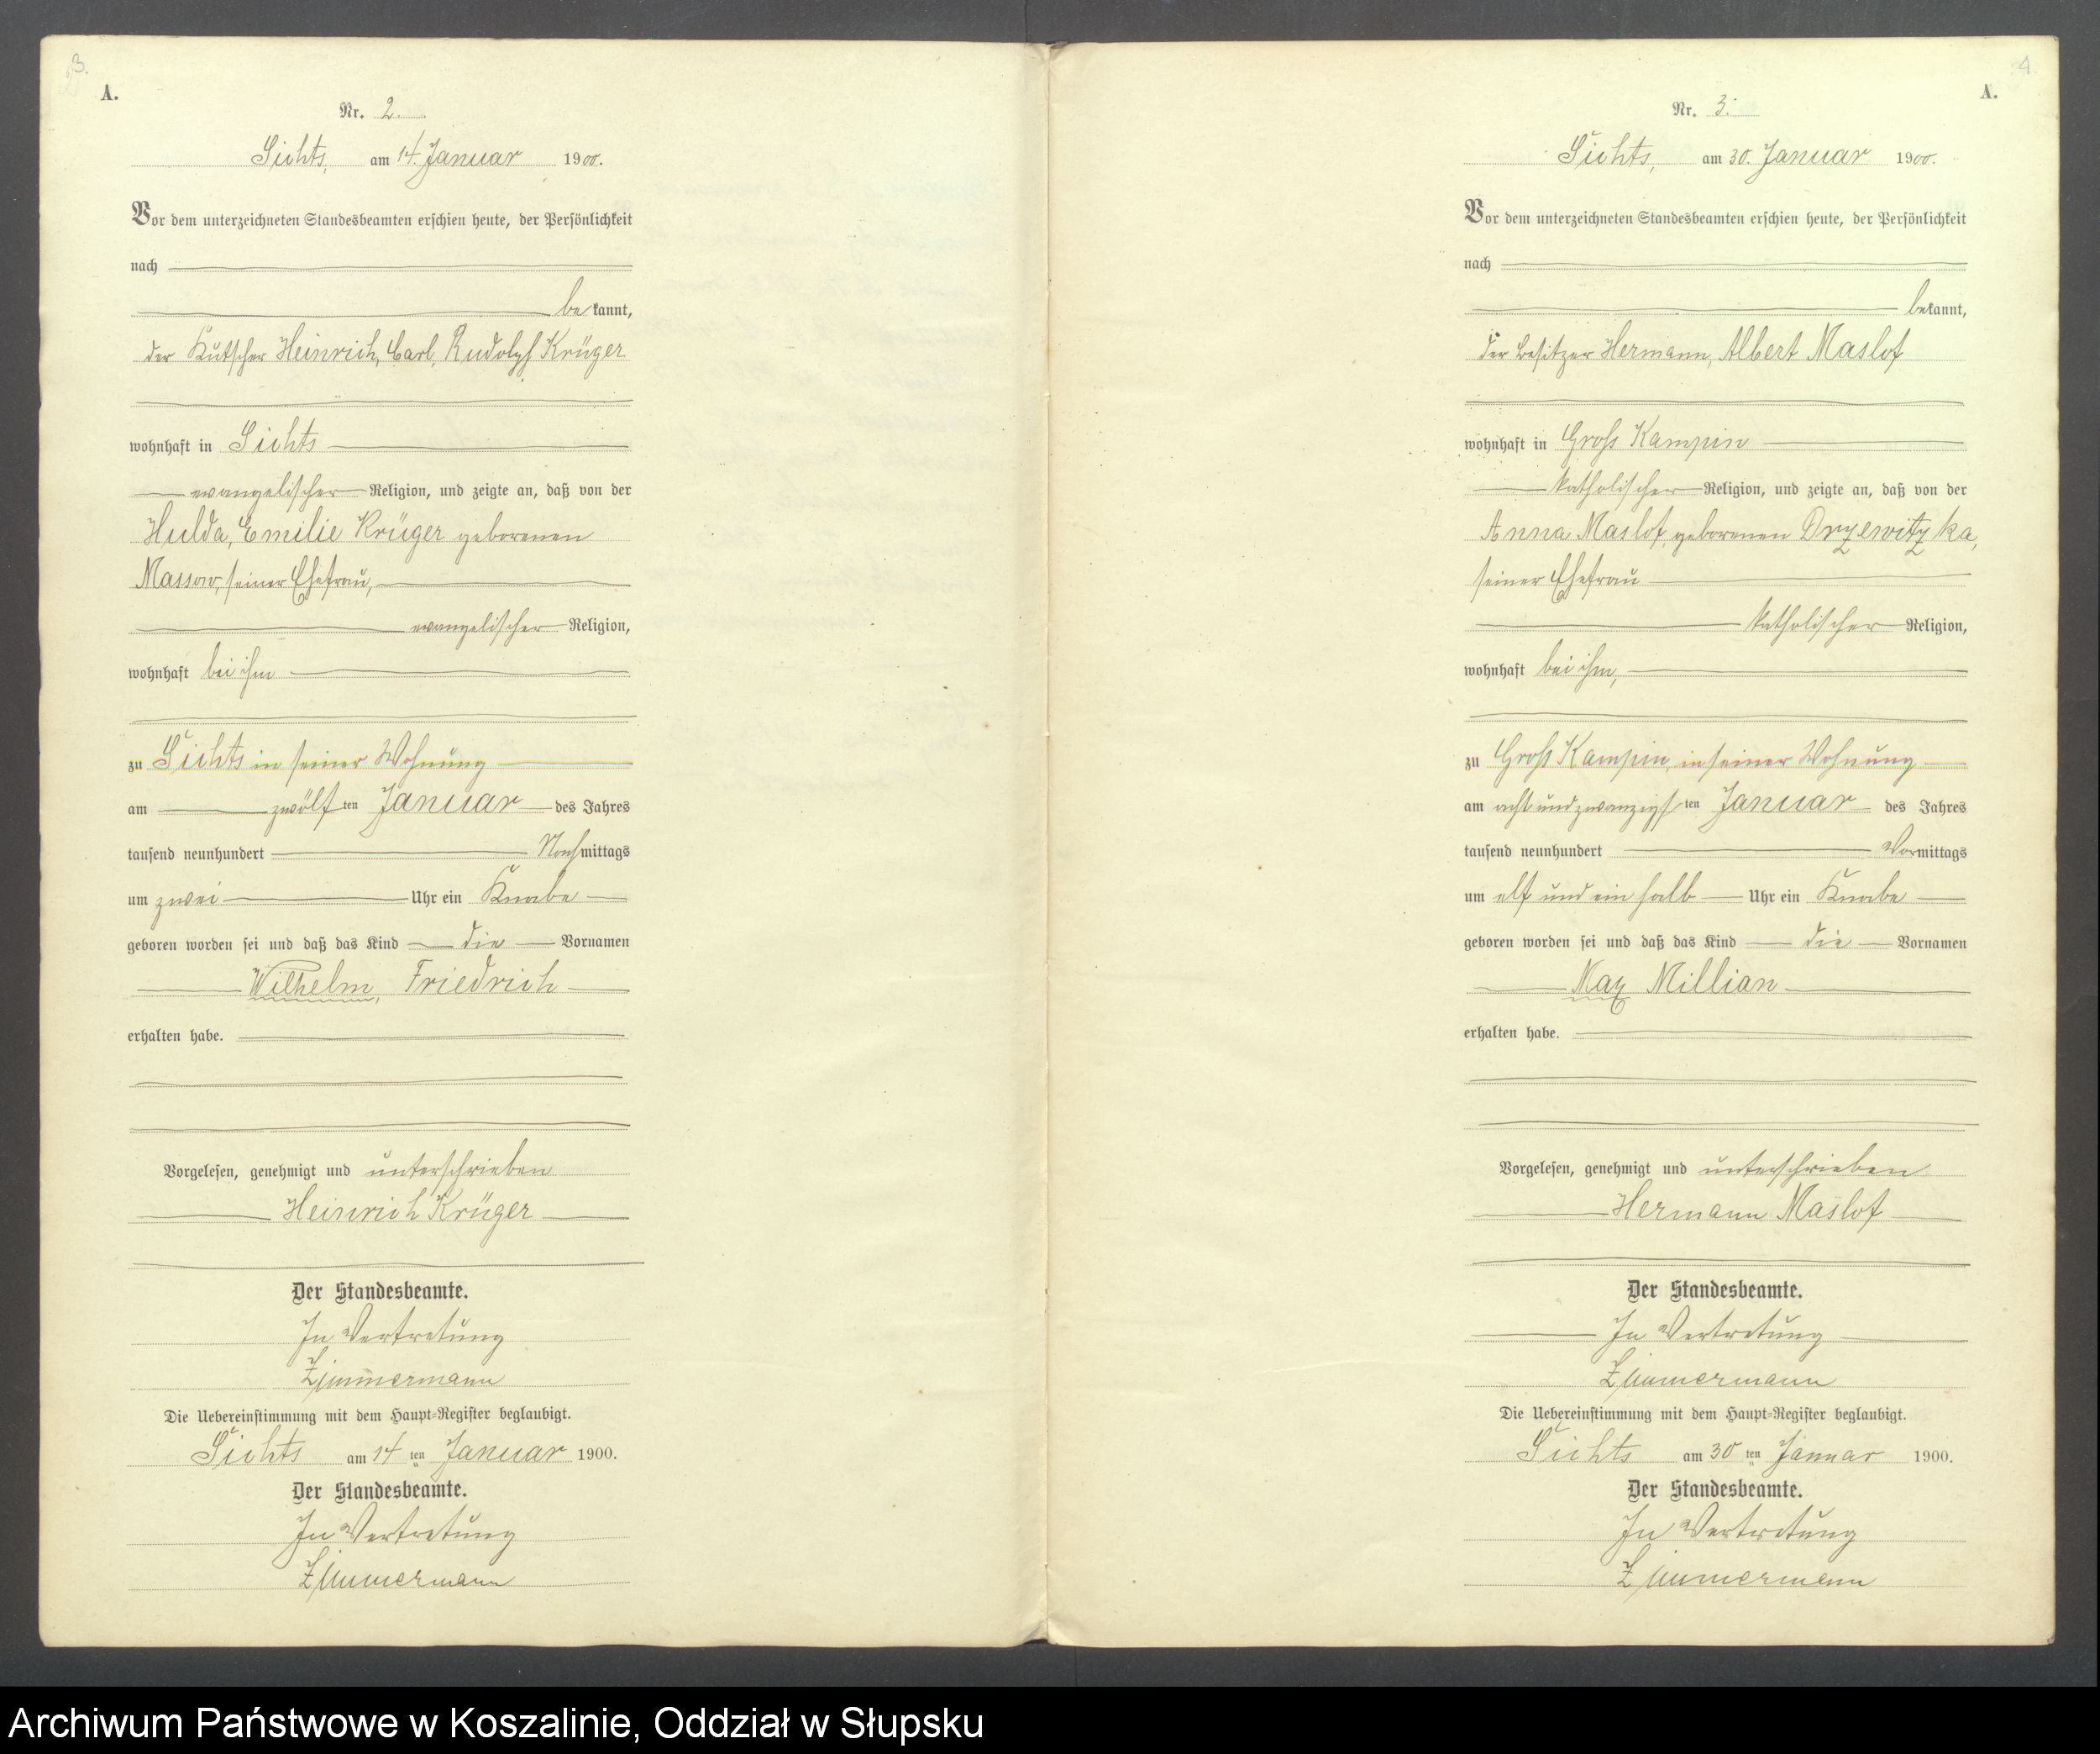 3.
A.
Nr. 2.
Sichts, am 14. Januar 1900.
Vor dem unterzeichneten Standesbeamten erschien heute, der Persönlichkeit
nach
bekannt,
der Kutscher Heinrich, Carl, Rudolph Krüger
wohnhaft in Sichts
evangelischer Religion, und zeigte an, daß von der
Hulda, Emilie Krüger geborenen
Massow, seiner Ehefrau,
evangelischer Religion,
wohnhaft bei ihm
zu Sichts in seiner Wohnung
am zwölften Januar des Jahres
tausend neunhundert Nachmittags
um zwei Uhr ein Knabe
geboren worden sei und daß das Kind die Vornamen
Wilhelm, Friedrich
erhalten habe.
Vorgelesen, genehmigt und unterschrieben
Heinrich Krüger
Der Standesbeamte.
In Vertretung
Zimmermann
Die Uebereinstimmung mit dem Haupt-Register beglaubigt.
Sichts am 14 ten Januar 1900.
Der Standesbeamte.
In Vertretung
Zimmermann
4.
A.
Nr. 3.
Sichts, am 30. Januar 1900.
Vor dem unterzeichneten Standesbeamten erschien heute, der Persönlichkeit
nach
bekannt,
der Besitzer Hermann, Albert Maslof
wohnhaft in Groß Kampin
katholischer Religion, und zeigte an, daß von der
Anna Maslof, geborenen Dryewitzka,
seiner Ehefrau
katholischer Religion,
wohnhaft bei ihm,
zu Groß Kampin, in seiner Wohnung
am acht und zwanzigsten Januar des Jahres
tausend neunhundert Vormittags
um elf und ein halb Uhr ein Knabe
geboren worden sei und daß das Kind die Vornamen
Max Millian
erhalten habe.
Vorgelesen, genehmigt und unterschrieben
Hermann Maslof
Der Standesbeamte.
In Vertretung
Zimmermann
Die Uebereinstimmung mit dem Haupt-Register beglaubigt.
Sichts am 30 ten Januar 1900.
Der Standesbeamte.
In Vertretung
Zimmermann
Archiwum Państwowe w Koszalinie, Oddział w Słupsku